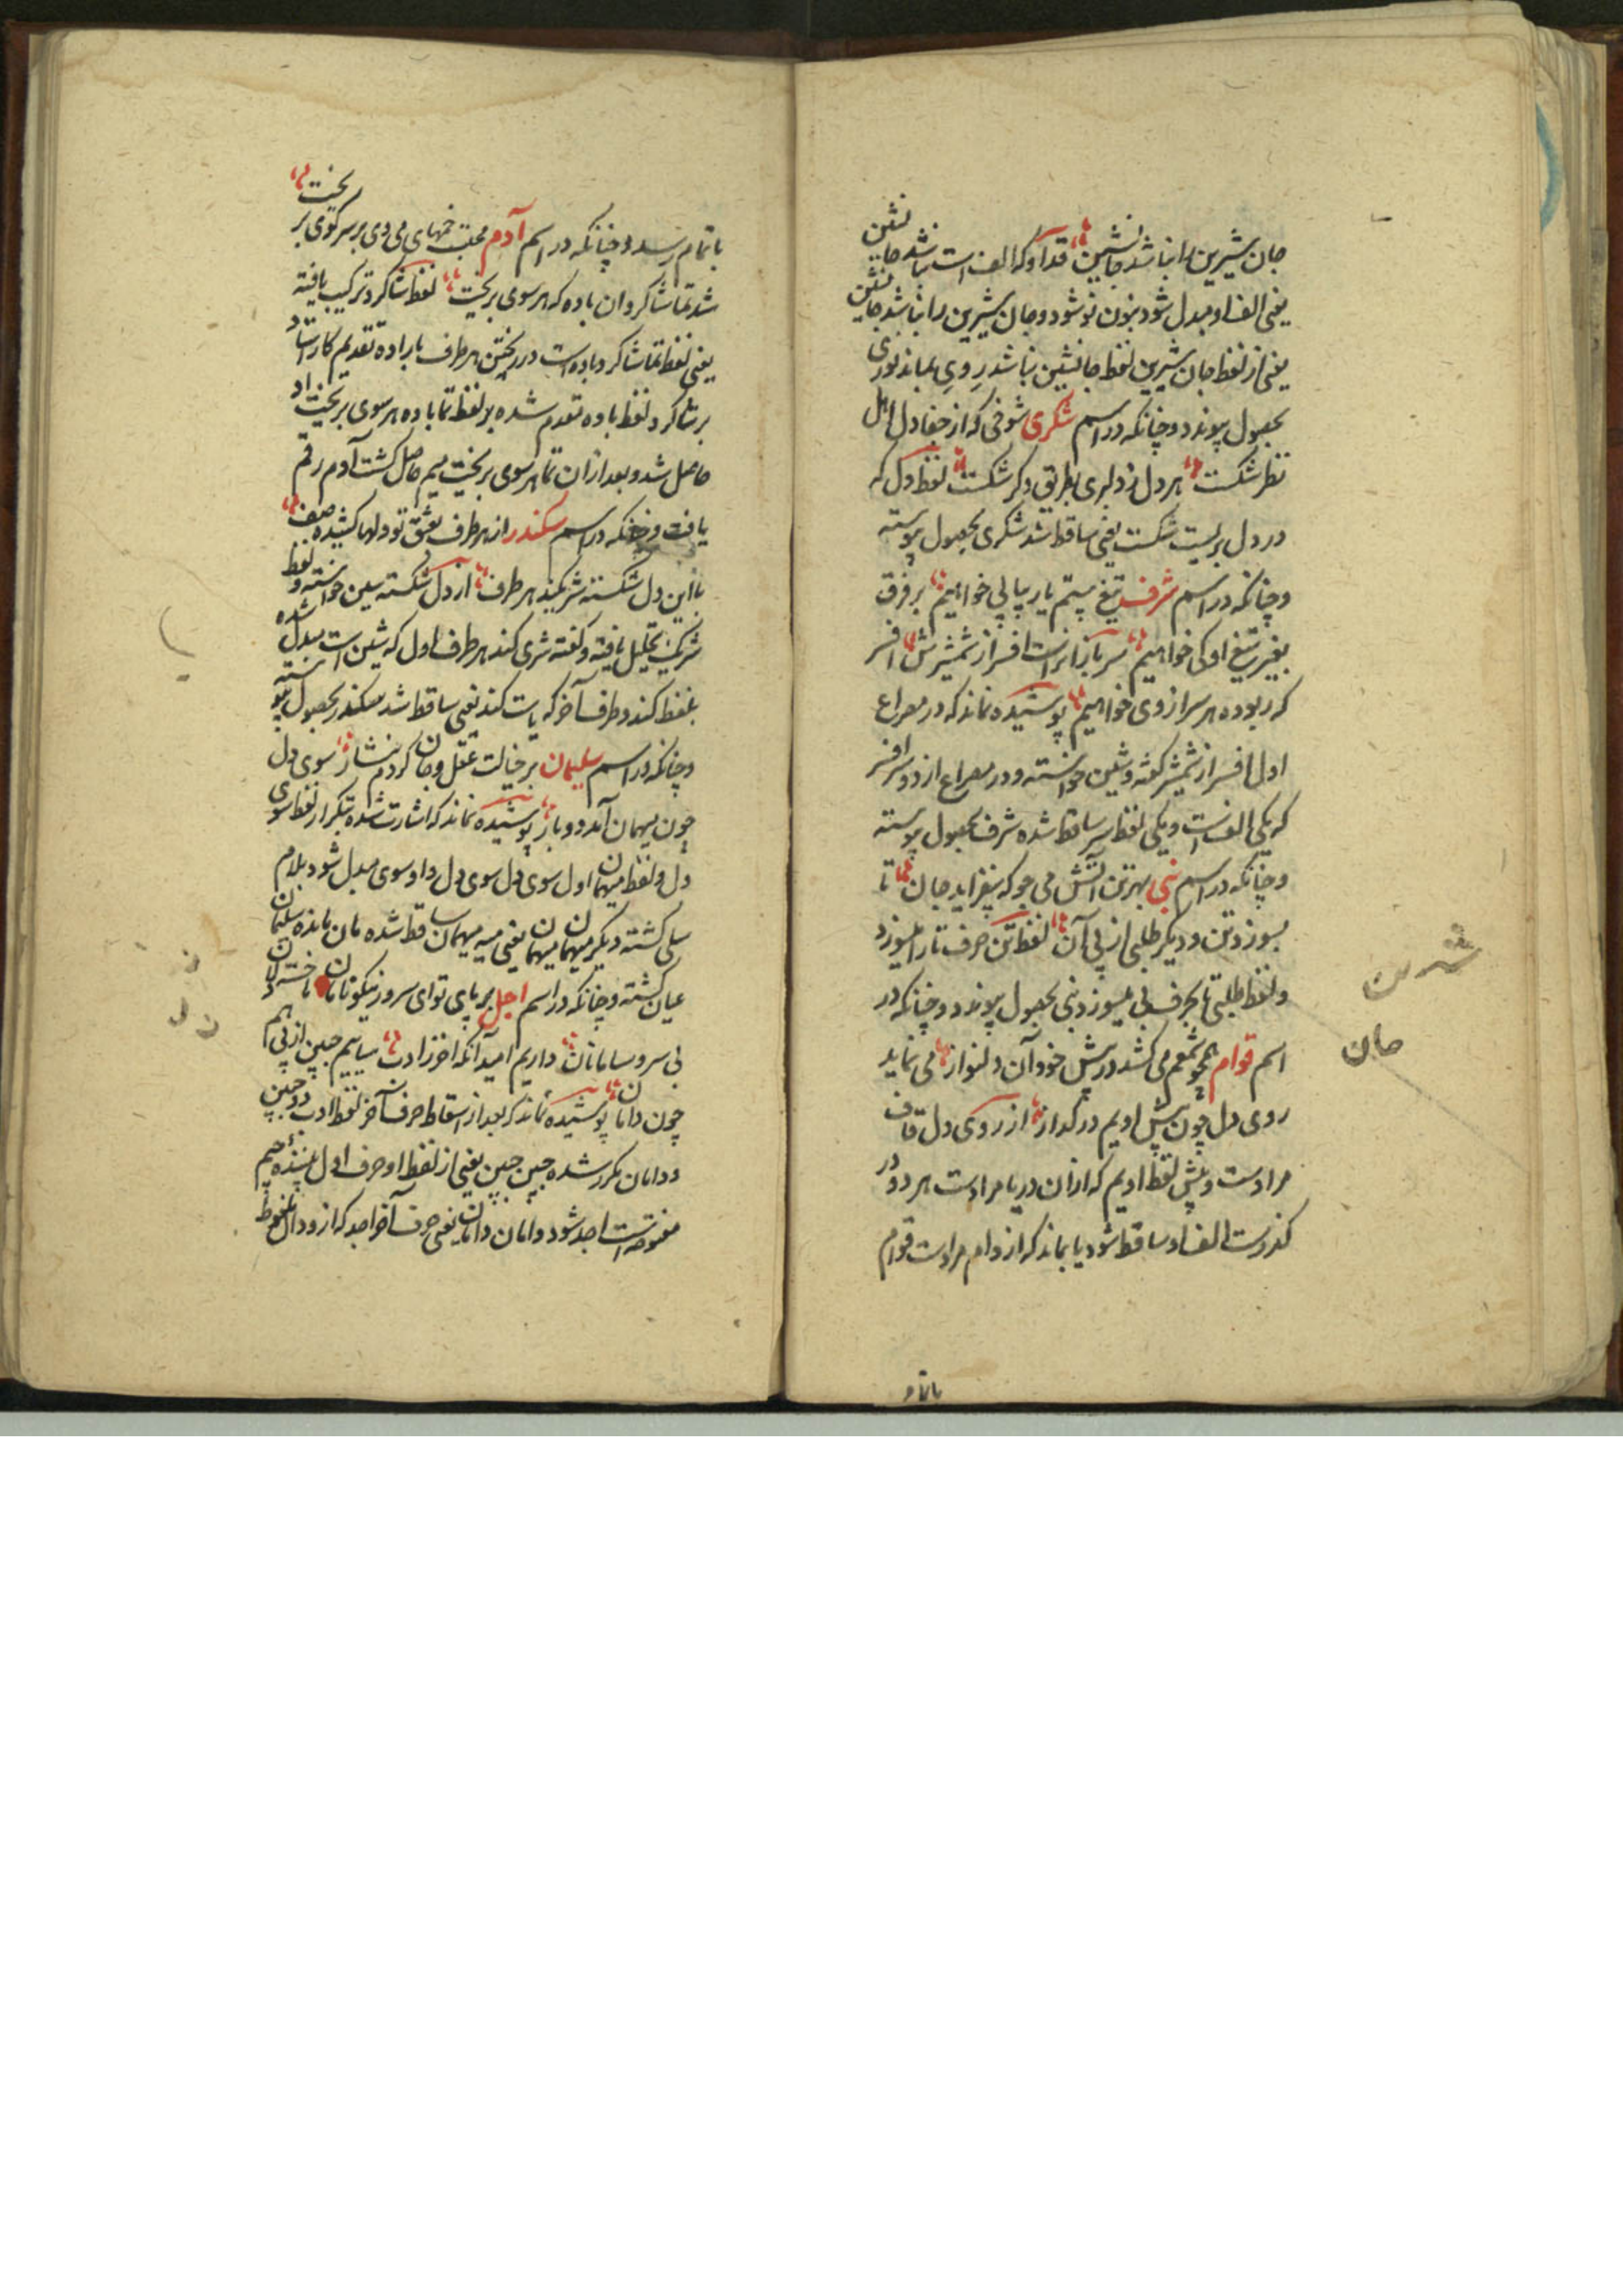 جان شیرین را نباشد جانشین قد او که الف است نباشد جانشین
یعنی الف او مبدل شود بنون نو شود و جان شیرین را نباشد جانشین
یعنی از لفظ جان شیرین لفظ جانشین نباشد ر وی بماند نوری
بحصول پیوندد و چنانکه در اسم شکری شوخی که از جفا دل اهل
نظر شکست هر دل ز دلبری بطریق دگر شکست لفظ دل که
در دل بریست شکست یعنی ساقط شد شکری بحصول پیوسته
و چنانکه در اسم شرف تیغ ستم یار پیاپی خواهیم بر فرق
بغیر تیغ او کی خواهیم سربازانراست افسر از شمشیرش افسر
که ربوده هر سر از وی خواهیم پوشیده نماند که در مصراع
اول افسر از شمشیر گفته و شین خواسته و در مصراع از دو سر افسر
که یکی الف است و یکی لفظ سر ساقط شده شرف بحصول پیوسته
و چنانکه در اسم نبی بهر تن آتش می جو که بیفزاید جان تا
بسوزد تن و دیگر طلبی از پی آن لفظ تن حرف تا را بسوزد
و لفظ طلبی تا بحرف بی بسوزد نبی بحصول پیوندد و چنانکه در
اسم قوام همچو شمعم می کشد در پیش خود آن دلنواز می نماید
روی دل چون پیش اویم در گداز از روی دل قاف
مرادست و پیش لفظ اویم که ازان دریا مرادست هر دو در
گذرست الف او ساقط شود یا بماند که ازو ام مرادست قوام
باتمام
شیرین
جان
باتمام رسد و چنانکه در اسم آدم محتسب خمهای می وی بر سر کوی بریخت
شد تماشا کرد ان باده که هر سوی بریخت لفظ شاکرد ترکیب یافته
یعنی لفظ تماشا کرد باده است در ریختن هر طرف باراده تقدیم کار استاد
بر شاکرد لفظ باده مقدم شده بر لفظ تما باده هر سوی بریخت اد
حاصل شد و بعد ازان تما هر سوی بریخت میم حاصل گشت آدم رقم
یافت و چنانکه در اسم سکندر از هر طرف بعشق تو دلها کشیده صف
با این دل شکسته شر یکیند هر طرف از دل شکسته سین خواسته و لفظ
شریکیند تحلیل یافته و گفته شری کند هر طرف اول که شین است مبدل شده
بلفظ کند و طرف آخر که یاست کند یعنی ساقط شد سکندر بحصول پیوسته
و چنانکه در اسم سلیمان بر خیالت عقل و جان کردم نثار سوی دل
چون میهمان آمد دو بار پوشیده نماند که اشارت شده بتکرار لفظ سوی
دل و لفظ میهمان اول سوی دل سوی دل واو سوی مبدل شود بلام
سلی گشته دیگر میهمان میهمان یعنی میه میهمان ساقط شده مان مانده سلیمان
عیان گشته و چنانکه در اسم اجل بر پای تو ای سرو نیکو تا دامان ما خسته دلان
بی سر و سامانان داریم امید آنکه اخر ز ادب بساییم جبین از پی هم
چون دامان پوشیده نماند که بعد از اسقاط حرف آخر لفظ ادب و جبین
و دامان مکرر شده جبین جبین یعنی از لفظ او حرف اول بیننده جیم
مفتوحه است اجد شود و دامان دامان یعنی حرف آخر اجد که ازو دال ملفوظ